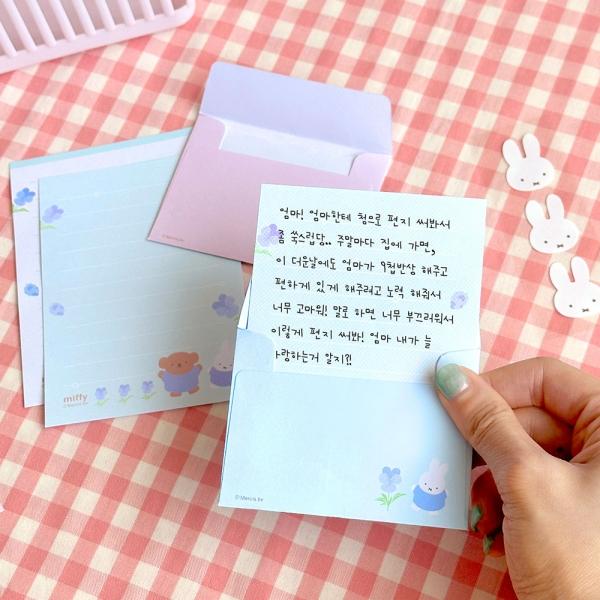 엄마! 엄마한테 첨으로 편지 써봐서
좀 쑥스럽당.. 주말마다 집에 가면,
이 더운날에도 엄마가 9첩반상 해주고
편하게 있게 해주려고 노력 해줘서
너무 고마워! 말로 하면 너무 부끄러워서
이렇게 편지 써봐! 엄마 내가 늘
사랑하는거 알지?!
miffy
© Mercis bv
© Mercis bv
© Mercis bv